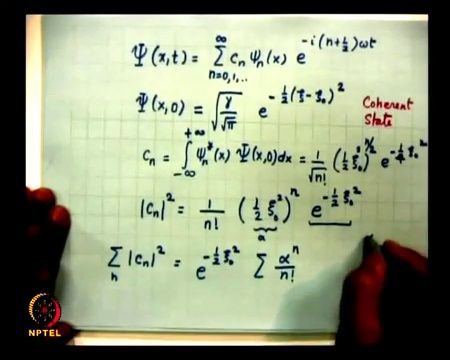 Ψ(x,t) = ∑_{n=0,1,..}^{∞} c_n ψ_n(x) e^{-i(n+½)ωt}
Ψ(x,0) = √(γ/√π) e^{-½(ξ-ξ₀)²} Coherent State
c_n = ∫_{-∞}^{+∞} ψ_n*(x) Ψ(x,0)dx = 1/√n! (½ξ₀²)^{n/2} e^{-¼ξ₀²}
|c_n|² = 1/n! (½ξ₀²)ⁿ e^{-½ξ₀²}
a
∑_n |c_n|² = e^{-½ξ₀²} ∑ αⁿ/n!
NPTEL